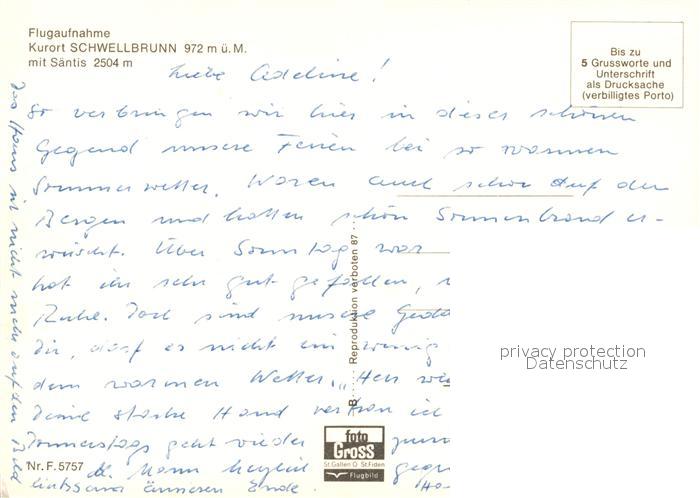 Flugaufnahme
Kurort SCHWELLBRUNN 972 m ü.M.
mit Säntis 2504 m
Bis zu
5 Grussworte und
Unterschrift
als Drucksache
(verbilligtes Porto)
Liebe Adeline!
So verbringen wir hier in dieser schönen
Gegend unsere Ferien bei so warmen
Sommerwetter. Waren auch schon auf den
Bergen und hatten schön Sonnenbrand er-
wischt. Über Sonntag war
hat ihr sehr gut gefallen,
Ruhe. Doch sind unsere
Dir, darf es nicht ein wenig
dem warmen Wetter. „Herr
Deine starke Hand
Donnerstags geht wieder zum
herzlich
Ende.
Das Haus ist nicht mehr auf dem Bild
Reproduktion verboten 87
foto
Gross
St.Gallen O St.Fiden
Flugbild
Nr. F. 5757
privacy protection
Datenschutz